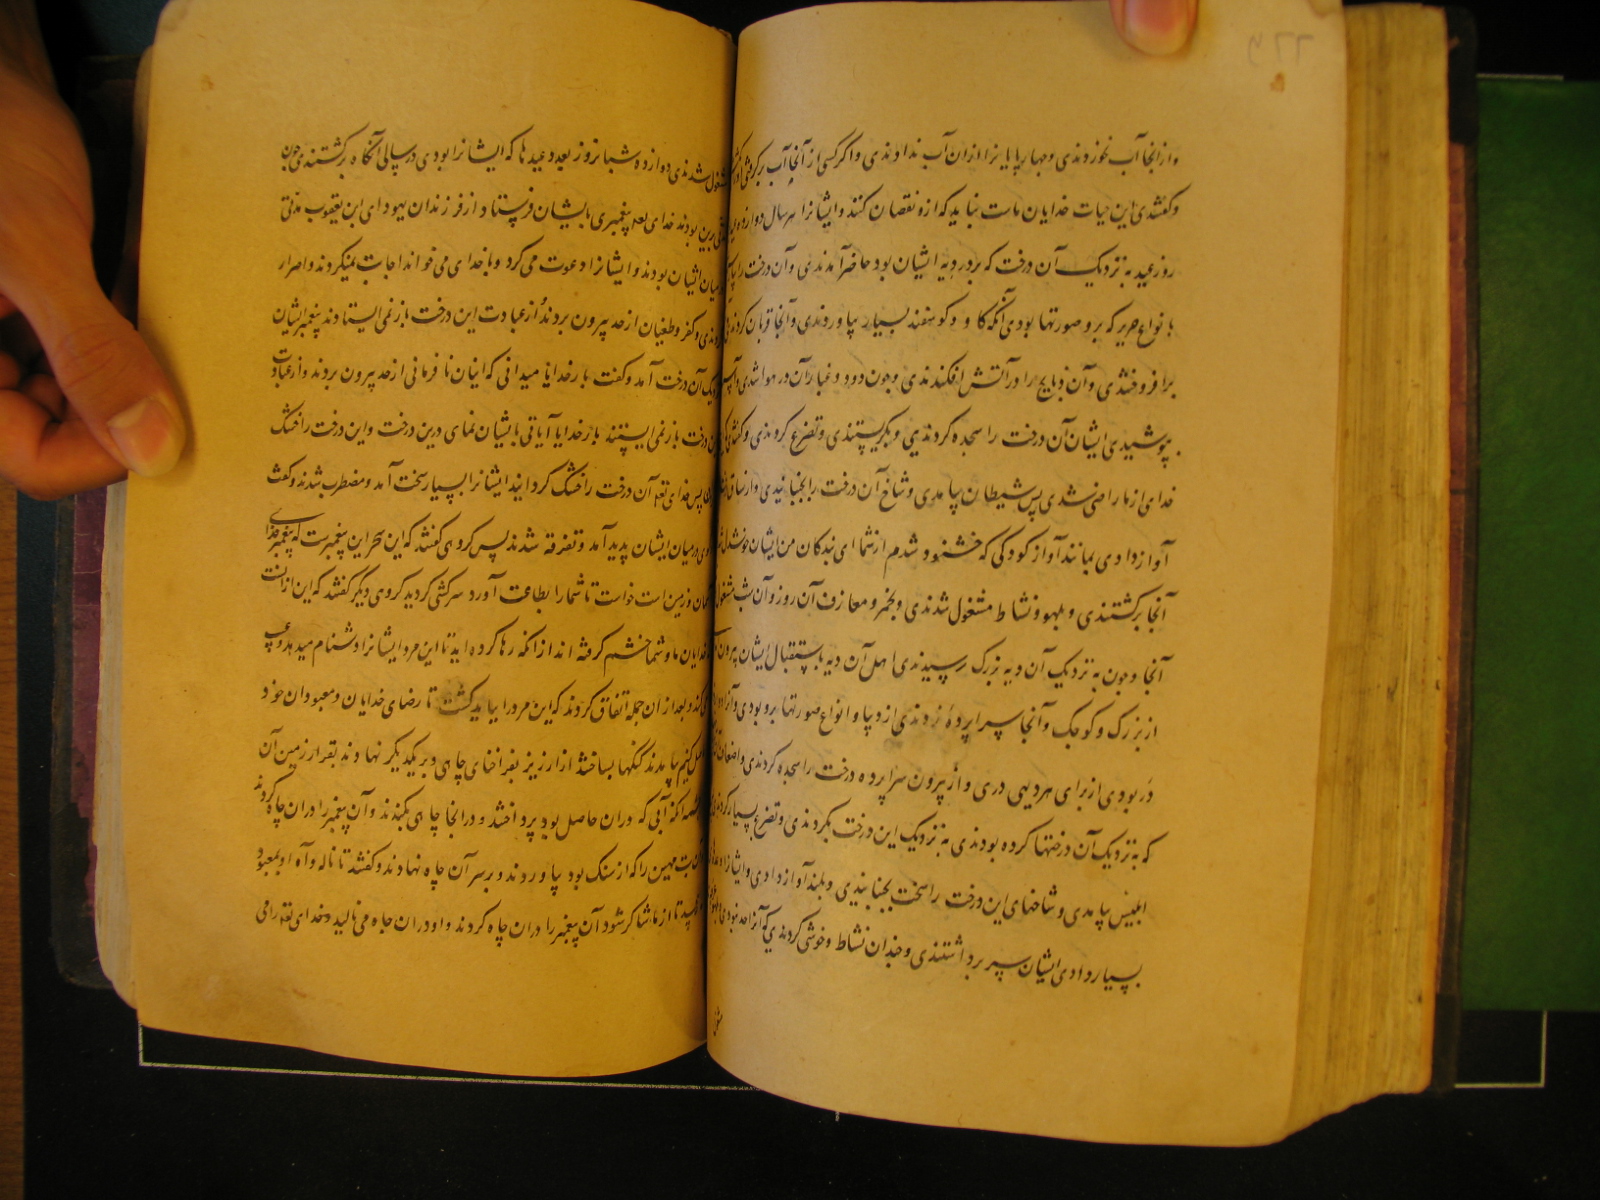 و از انجا آب نخوردندی و چهارپایانرا از ان آب ندادندی و اگر کسی از آنجا آب برگرفتی
و کفتندی این حیات خدایان ماست نباید که ازو نقصان کنند و ایشانرا هر سال دوازده
روز عید به نزدیک آن درخت که بر در دیه ایشان بود حاضر آمدندی و آن درخت را
بانواع حریر که برو صورتها بودی آنکه کاو و کوسفند بسیار بیاوردندی و آنجا قربان کردندی
برافروختندی و آن ذبایح را در آتش افکندندی و چون دود و غبار آن در هوا شدی و
بپوشیدی ایشان آن درخت را سجده کردندی و بگریستندی و تضرع کردندی و
خدای از ما راضی شدی پس شیطان بیامدی و شاخ آن درخت را بجنبانیدی و از ساق
آواز دادی بمانند آواز کودکی که خشنود شدم از شما ای بندکان من ایشان خوشدل
آنجا برگشتندی و بلهو و نشاط مشغول شدندی و بخمر و معازف آن روز و آن شب مشغول
آنجا و چون به نزدیک آن دیه بزرک رسیدندی اهل آن دیه باستقبال ایشان بیرون
از بزرک و کوچک و آنجا سراپرده زدندی از دیبا و انواع صورتها برو بودی و آنرا
در بودی از برای هر دیهی دری و از بیرون سراپرده درخت را سجده کردندی و اضعاف
که به نزدیک آن درختها کرده بودندی به نزدیک این درخت بکردندی و تضرع بسیار
ابلیس بیامدی و شاخهای این درخت را سخت بجنبانیدی و بلند آواز دادی و ایشانرا
بسیار دادی ایشان سر برداشتندی و چندان نشاط و خوشی کردندی که آنرا حد نبودی
مشغول شدندی دوازده شبانروز بعدد عیدها که ایشانرا بودی در سالی آنکاه برگشتندی چون
برین بودند خدای تعه پیغمبری بایشان فرستاد از فرزندان یهودای ابن یعقوب مدتی
میان ایشان بودند و ایشانرا دعوت می کرد و با خدای می خواند اجابت نمیکردند و اصرار
و کفر و طغیان از حد بیرون بردند و از عبادت این درخت باز نمی ایستادند پیغمبر ایشان
آن درخت آمد و کفت بار خدایا میدانی که اینان نافرمانی از حد بیرون بردند و از عبادت
درخت باز نمی ایستند بار خدایا آیاتی بایشان نمای درین درخت و این درخت را خشک
پس خدای تعه آن درخت را خشک کردانید ایشانرا بسیار سخت آمد و مضطرب شدند و کفت
در میان ایشان پدید آمد و تفرقه شدند پس کروهی کفتند که این سحر این پیغمبرست که پیغمبر خدای
و زمین است خواست تا شما را بطاعت آورد سرکشی کردید کروهی دیگر کفتند که این از آنست
خدایان ما و شما خشم گرفته اند از انکه رها کرده اید تا این مرد ایشانرا دشنام میدهد و عیب
و بعد از ان جمله اتفاق کردند که این مرد را بباید کشت تا رضای خدایان و معبودان خود
بیامدند کنکها بساختند از ارزیز بفراخنای چاهی و بر یکدیگر نهادند بقرار زمین آن
آنکه آبی که دران حاصل بود بپرداختند و در انجا چاهی بکندند و آن پیغمبر را دران چاه کردند
مهین را که از سنک بود بیاوردند و بر سر آن چاه نهادند و کفتند تا ناله و آه او بمعبود
تا از ما شاکر شود آن پیغمبر را دران چاه کردند و او دران چاه می نالید و خدای تعه را می